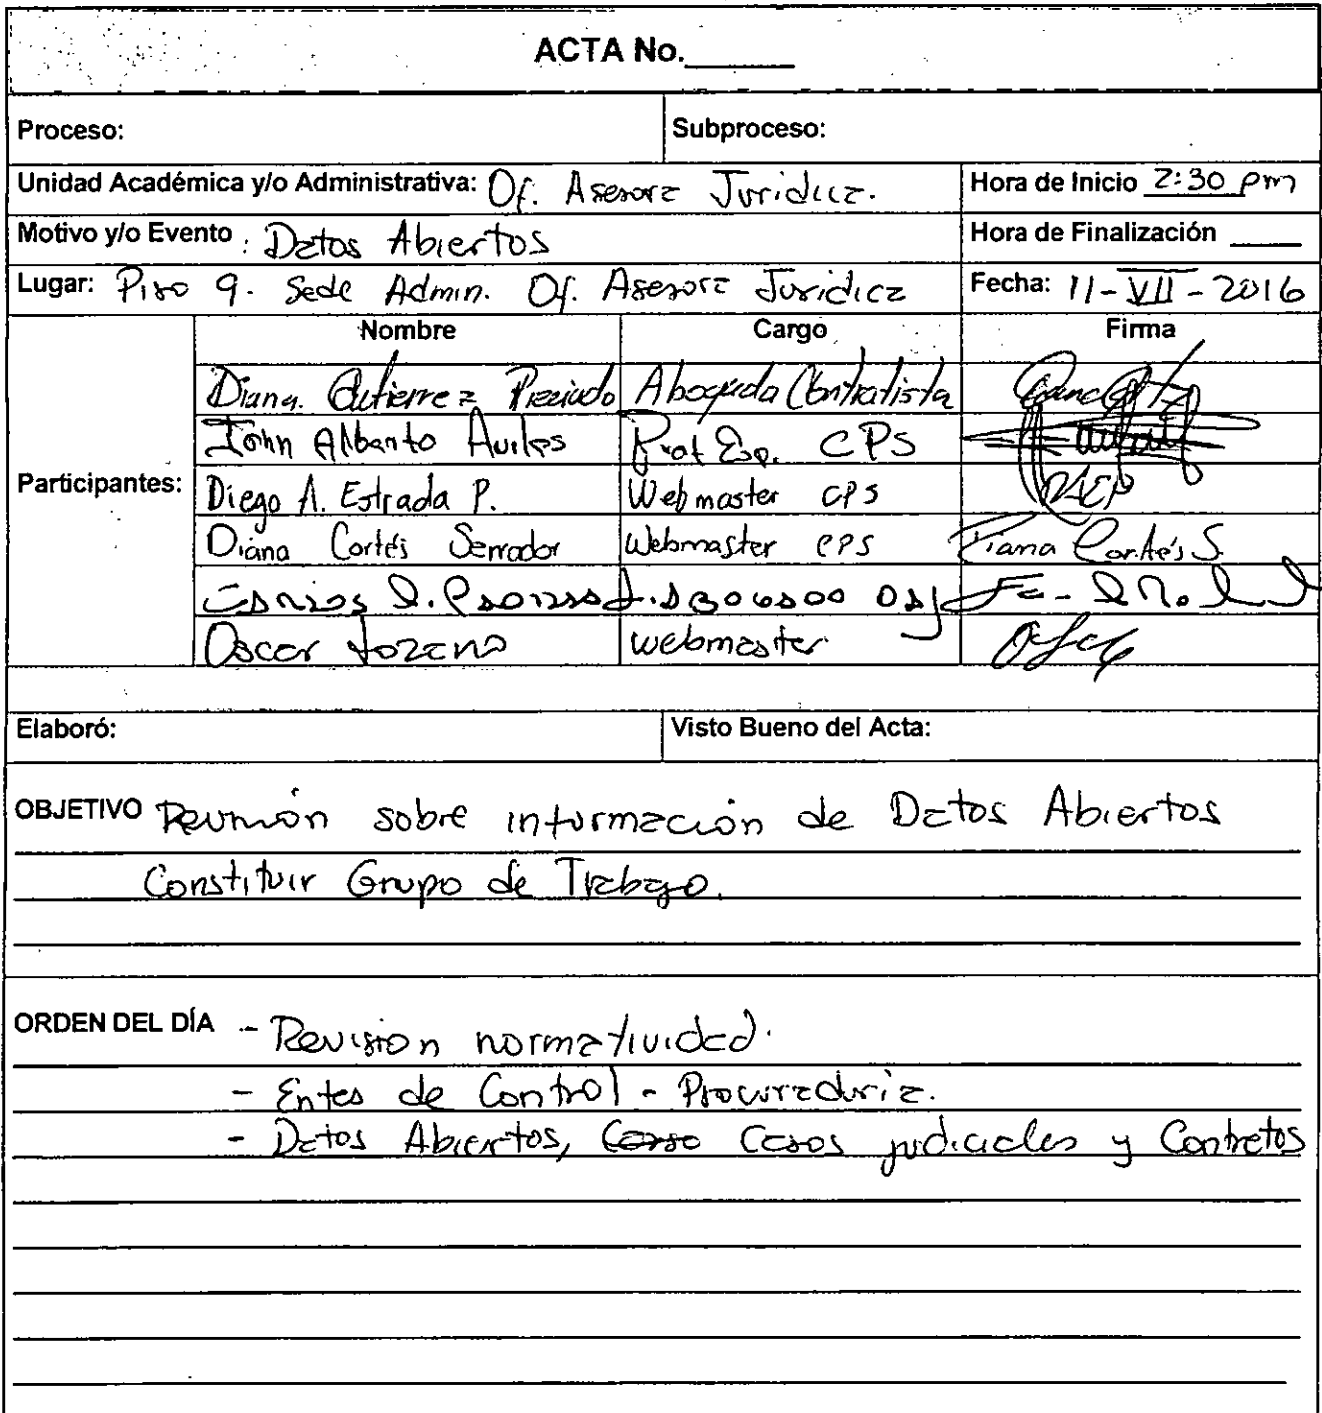 ACTA No.
Proceso: Subproceso:
Unidad Académica y/o Administrativa: Of. Asesora Jurídica. Hora de Inicio 2:30 pm
Motivo y/o Evento: Datos Abiertos Hora de Finalización
Lugar: Piso 9. Sede Admin. Of. Asesora Jurídica Fecha: 11-VII-2016
Nombre Cargo Firma
Diana. Gutierrez Preciado Abogada Contratista
John Albanto Aviles Prof Esp. CPS
Participantes: Diego A. Estrada P. Webmaster CPS DAEP
Diana Cortés Serrador Webmaster CPS Diana Cortés S.
Carlos OAJ
Oscar Lozano webmaster.
Elaboró: Visto Bueno del Acta:
OBJETIVO Reunión sobre información de Datos Abiertos
Constituir Grupo de Trabajo.
ORDEN DEL DÍA - Revisión normatividad.
- Entes de Control - Procuraduria.
- Datos Abiertos, Casos judiciales y Contratos